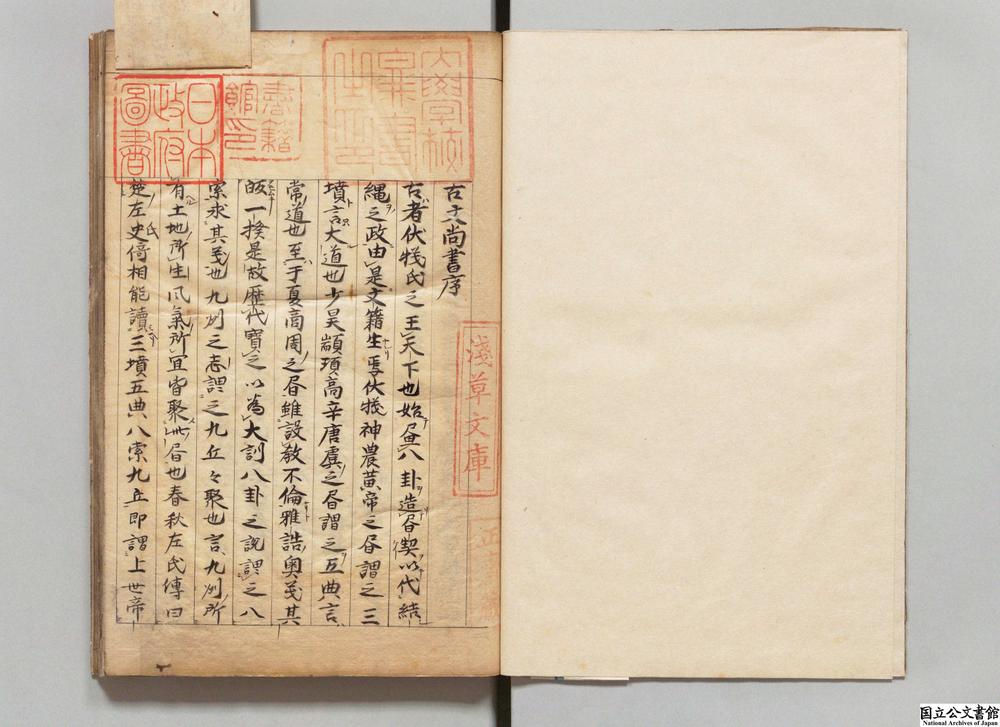 古文尚書序
古者伏犧氏之王天下也始畫八卦造書契以代結
繩之政由是文籍生焉伏犧神農黃帝之書謂之三
墳言大道也少昊顓頊高辛唐虞之書謂之五典言
常道也至于夏商周之書雖設教不倫雅誥奧義其
皈一揆是故歷代寶之以為大訓八卦之說謂之八
索求其義也九州之志謂之九丘々聚也言九州所
有土地所生風氣所宜皆聚此書也春秋左氏傳曰
楚左史倚相能讀三墳五典八索九丘即謂上世帝
淺草文庫
書籍館印
日本政府圖書
国立公文書館
National Archives of Japan